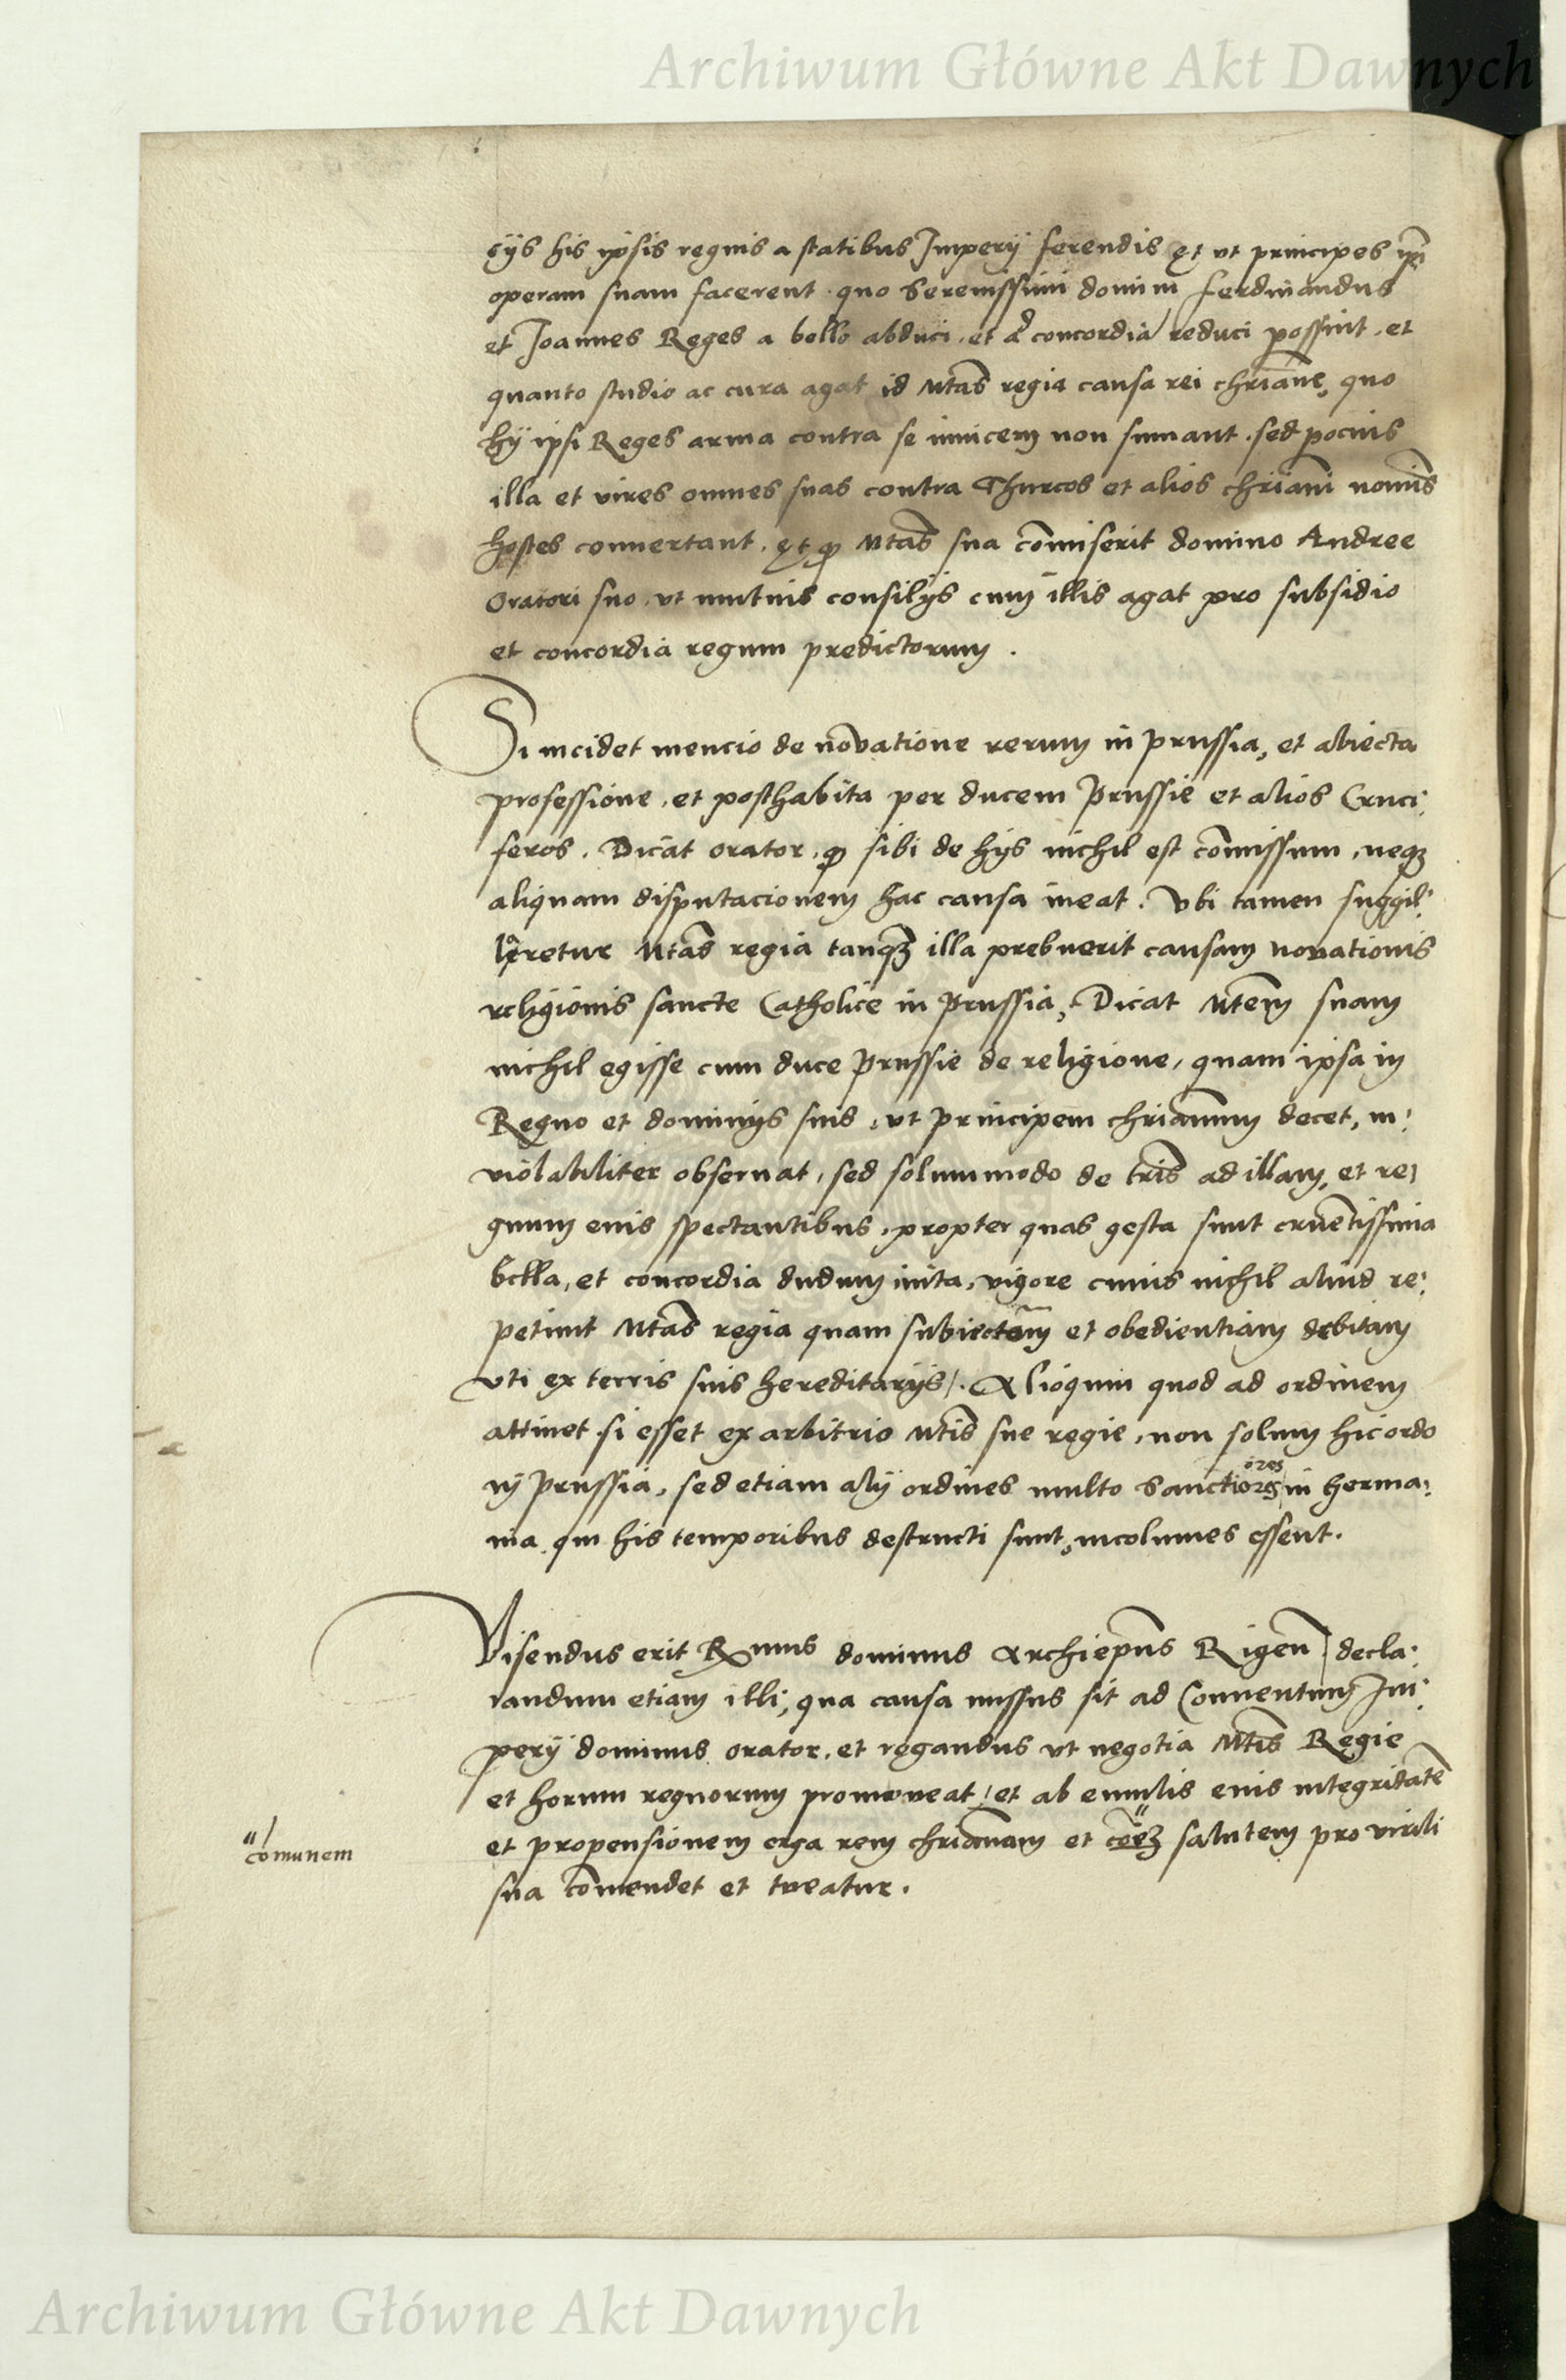 Archiwum Główne Akt Dawnych
cijs his ipsis regnis a statibus Imperij ferendis Et vt principes ipi
operam suam facerent quo Serenissimi domini ferdinandus
et Joannes Reges a bello abduci, et ad concordiā reduci possint, et
quanto studio ac cura agat id Mtas regia causa rei chriane, quo
hij ipsi Reges arma contra se inuicem non sumant. sed pocius
illa et vires omnes suas contra Thurcos et alios chriani nomis
hostes conuertant. Et qp Mtas sua comiserit domino Andree
Oratori suo, vt mutuis consilijs cum illis agat pro subsidio
et concordia regum predictorum.
Si incidet mencio de novatione rerum in prussia, et abiecta
professione, et posthabita per ducem Prussie et alios Cruci:
feros. Dicat orator, qp sibi de hijs nichil est comissum, neqz
aliquam disputacionem hac causa ineat. Vbi tamen suggil:
laretur Mtas regia tanqz illa prebuerit causam novationis
religionis sancte Catholice in Prussia, Dicat Mtem suam
nichil egisse cum duce Prussie de religione, quam ipsa in
Regno et dominijs suis, vt principem chrianum decet, in:
violabiliter obseruat, sed solummodo de tris ad illam, et re:
gnum eius spectantibus, propter quas gesta sunt cruentissima
bella, et concordia dudum inita, vigore cuius nichil aliud re:
petiuit Mtas regia quam subiectam et obedientiam debitam
vti ex terris suis hereditarijs. Alioquin quod ad ordinem
attinet si esset ex arbitrio Mtis sue regie, non solum hic ordo
in Prussia, sed etiam alij ordines multo sanctiores in Germa:
nia qui his temporibus destructi sunt, incolumes essent.
Visendus erit Rmus dominus Archiepus Rigen decla:
randum etiam illi, qua causa missus sit ad Conuentum Im:
perij dominus orator, et rogandus vt negotia Mtis Regie
et horum regnorum promoveat, et ab emulis eius integritate
et propensionem erga rem chrianam et coez salutem pro virili
comunem
sua comendet et tueatur.
Archiwum Główne Akt Dawnych